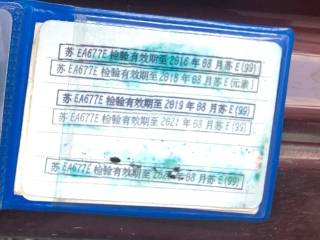 苏 EA677E 检验有效期至 2016 年 08 月苏 E (99)
苏 EA677E 检验有效期至 2018 年 08 月苏 E (元素)
苏 EA677E 检验有效期至 2019 年 08 月苏 E (99)
苏 EA677E 检验有效期至 2021 年 08 月苏 E (99)
苏 EA677E 检验有效期至 年 08 月苏 E (99)